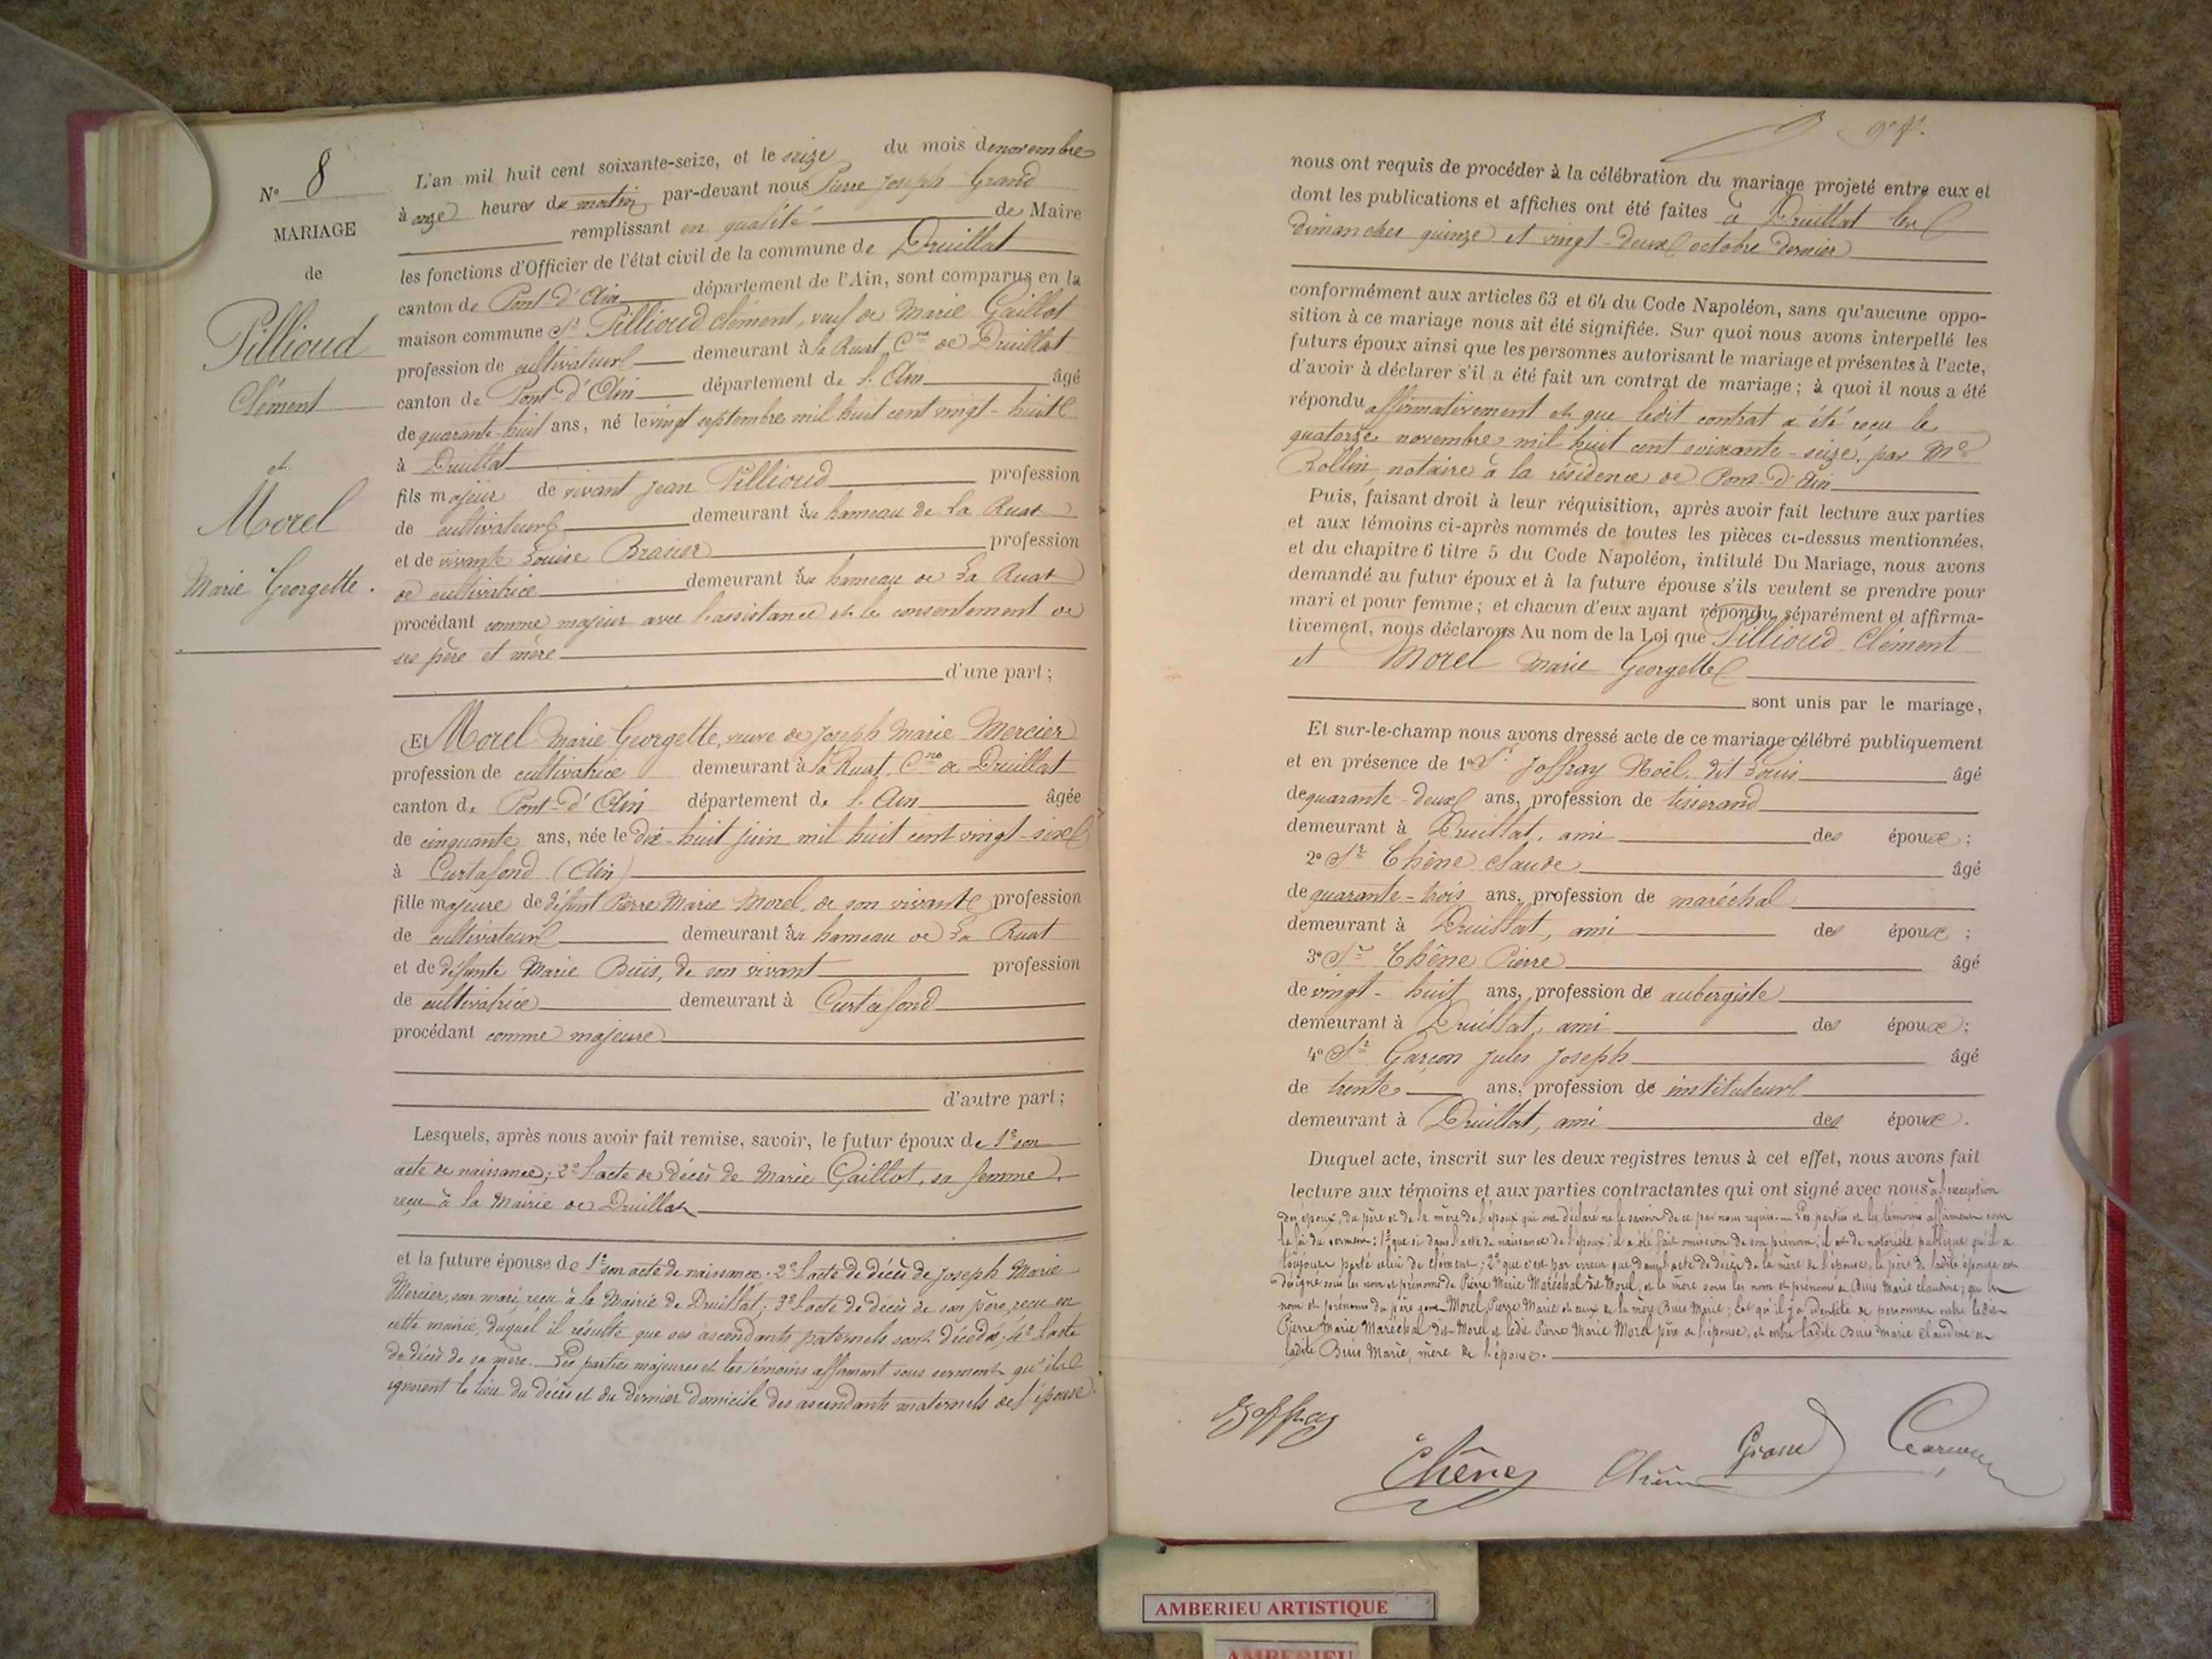 N° 8
MARIAGE
de
Pillioud
Clément
et
Morel
Marie Georgette.
L'an mil huit cent soixante-seize, et le seize du mois de novembre
à onze heures du matin par-devant nous Pierre Joseph Grand
remplissant en qualité de Maire
les fonctions d'Officier de l'état civil de la commune de Druillat
canton de Pont-d'Ain département de l'Ain, sont comparus en la
maison commune Sr Pillioud Clément, veuf de Marie Gaillot
profession de cultivateur demeurant à la Ruat Cne de Druillat
canton de Pont-d'Ain département de l'Ain âgé
de quarante-huit ans, né le vingt septembre mil huit cent vingt-huit
à Druillat
fils majeur de vivant Jean Pillioud profession
de cultivateur demeurant au hameau de La Ruat
et de vivante Louise Brasier profession
de cultivatrice demeurant au hameau de La Ruat
procédant comme majeur avec l'assistance et le consentement de
ses père et mère
d'une part ;
Et Morel Marie Georgette, veuve de Joseph Marie Mercier
profession de cultivatrice demeurant à la Ruat, Cne de Druillat
canton de Pont-d'Ain département de l'Ain âgée
de cinquante ans, née le dix-huit juin mil huit cent vingt-six
à Curtafond (Ain)
fille majeure de défunt Pierre Marie Morel, de son vivant profession
de cultivateur demeurant au hameau de La Ruat
et de défunte Marie Buis, de son vivant profession
de cultivatrice demeurant à Curtafond
procédant comme majeure
d'autre part ;
Lesquels, après nous avoir fait remise, savoir, le futur époux de 1° son
acte de naissance; 2° l'acte de décès de Marie Gaillot, sa femme,
reçu à la Mairie de Druillat
et la future épouse de 1° son acte de naissance; 2° l'acte de décès de Joseph Marie
Mercier, son mari, reçu à la Mairie de Druillat; 3° l'acte de décès de son père, reçu en
cette mairie, duquel il résulte que ses ascendants paternels sont décédés; 4° l'acte
de décès de sa mère. Les parties majeures et les témoins affirment sous serment qu'ils
ignorent le lieu du décès et du dernier domicile des ascendants maternels de l'épouse.
nous ont requis de procéder à la célébration du mariage projeté entre eux et
dont les publications et affiches ont été faites à Druillat les
dimanches quinze et vingt-deux octobre dernier
conformément aux articles 63 et 64 du Code Napoléon, sans qu'aucune oppo-
sition à ce mariage nous ait été signifiée. Sur quoi nous avons interpellé les
futurs époux ainsi que les personnes autorisant le mariage et présentes à l'acte,
d'avoir à déclarer s'il a été fait un contrat de mariage ; à quoi il nous a été
répondu affirmativement et que ledit contrat a été reçu le
quatorze novembre mil huit cent soixante-seize, par Me
Rollin, notaire à la résidence de Pont-d'Ain
Puis, faisant droit à leur réquisition, après avoir fait lecture aux parties
et aux témoins ci-après nommés de toutes les pièces ci-dessus mentionnées,
et du chapitre 6 titre 5 du Code Napoléon, intitulé Du Mariage, nous avons
demandé au futur époux et à la future épouse s'ils veulent se prendre pour
mari et pour femme ; et chacun d'eux ayant répondu séparément et affirma-
tivement, nous déclarons Au nom de la Loi que Pillioud Clément
et Morel Marie Georgette
sont unis par le mariage,
Et sur-le-champ nous avons dressé acte de ce mariage célébré publiquement
et en présence de 1° Sr Joffray Noël, dit Louis âgé
de quarante-deux ans, profession de tisserand
demeurant à Druillat, ami des époux ;
2° Sr Chêne Claude âgé
de quarante-trois ans, profession de maréchal
demeurant à Druillat, ami des époux ;
3° Sr Chêne Pierre âgé
de vingt-huit ans, profession de aubergiste
demeurant à Druillat, ami des époux ;
4° Sr Garçon Jules Joseph âgé
de trente ans, profession de instituteur
demeurant à Druillat, ami des époux.
Duquel acte, inscrit sur les deux registres tenus à cet effet, nous avons fait
lecture aux témoins et aux parties contractantes qui ont signé avec nous à l'exception
des époux, du père et de la mère de l'époux qui ont déclaré ne le savoir de ce par nous requis. Les parties et les témoins affirment sous
la foi du serment: 1° que si dans l'acte de naissance de l'époux, il a été fait omission de son prénom, il est de notoriété publique qu'il a
toujours porté celui de Clément; 2° que c'est par erreur que dans l'acte de décès de la mère de l'épouse, le père de ladite épouse est
désigné sous les nom et prénoms de Pierre Marie Maréchal dit Morel, et la mère sous les nom et prénoms de Buis Marie Claudine, que les
nom et prénoms du père sont Morel Pierre Marie et ceux de la mère Buis Marie; Et qu'il y a identité de personnes entre ledit
Pierre Marie Maréchal dit Morel et ledit Pierre Marie Morel père de l'épouse, et entre ladite Buis Marie Claudine et
ladite Buis Marie, mère de l'épouse.
Joffray
Chêne Chêne Grand Garçon
AMBERIEU ARTISTIQUE
AMBERIEU